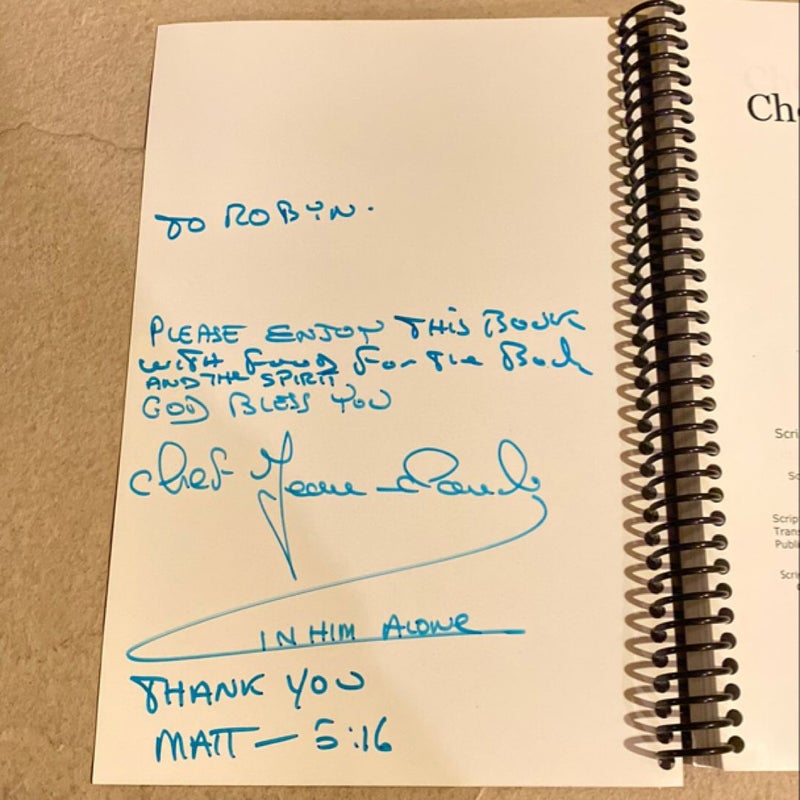 TO ROBYN.
PLEASE ENJOY THIS BOOK
WITH FOOD FOR THE Body
AND THE SPIRIT
GOD BLESS YOU
Chef Jean-
IN HIM ALONE
THANK YOU
MATT - 5:16
Ch
Scri
Sc
Scrip
Trans
Publi
Scri